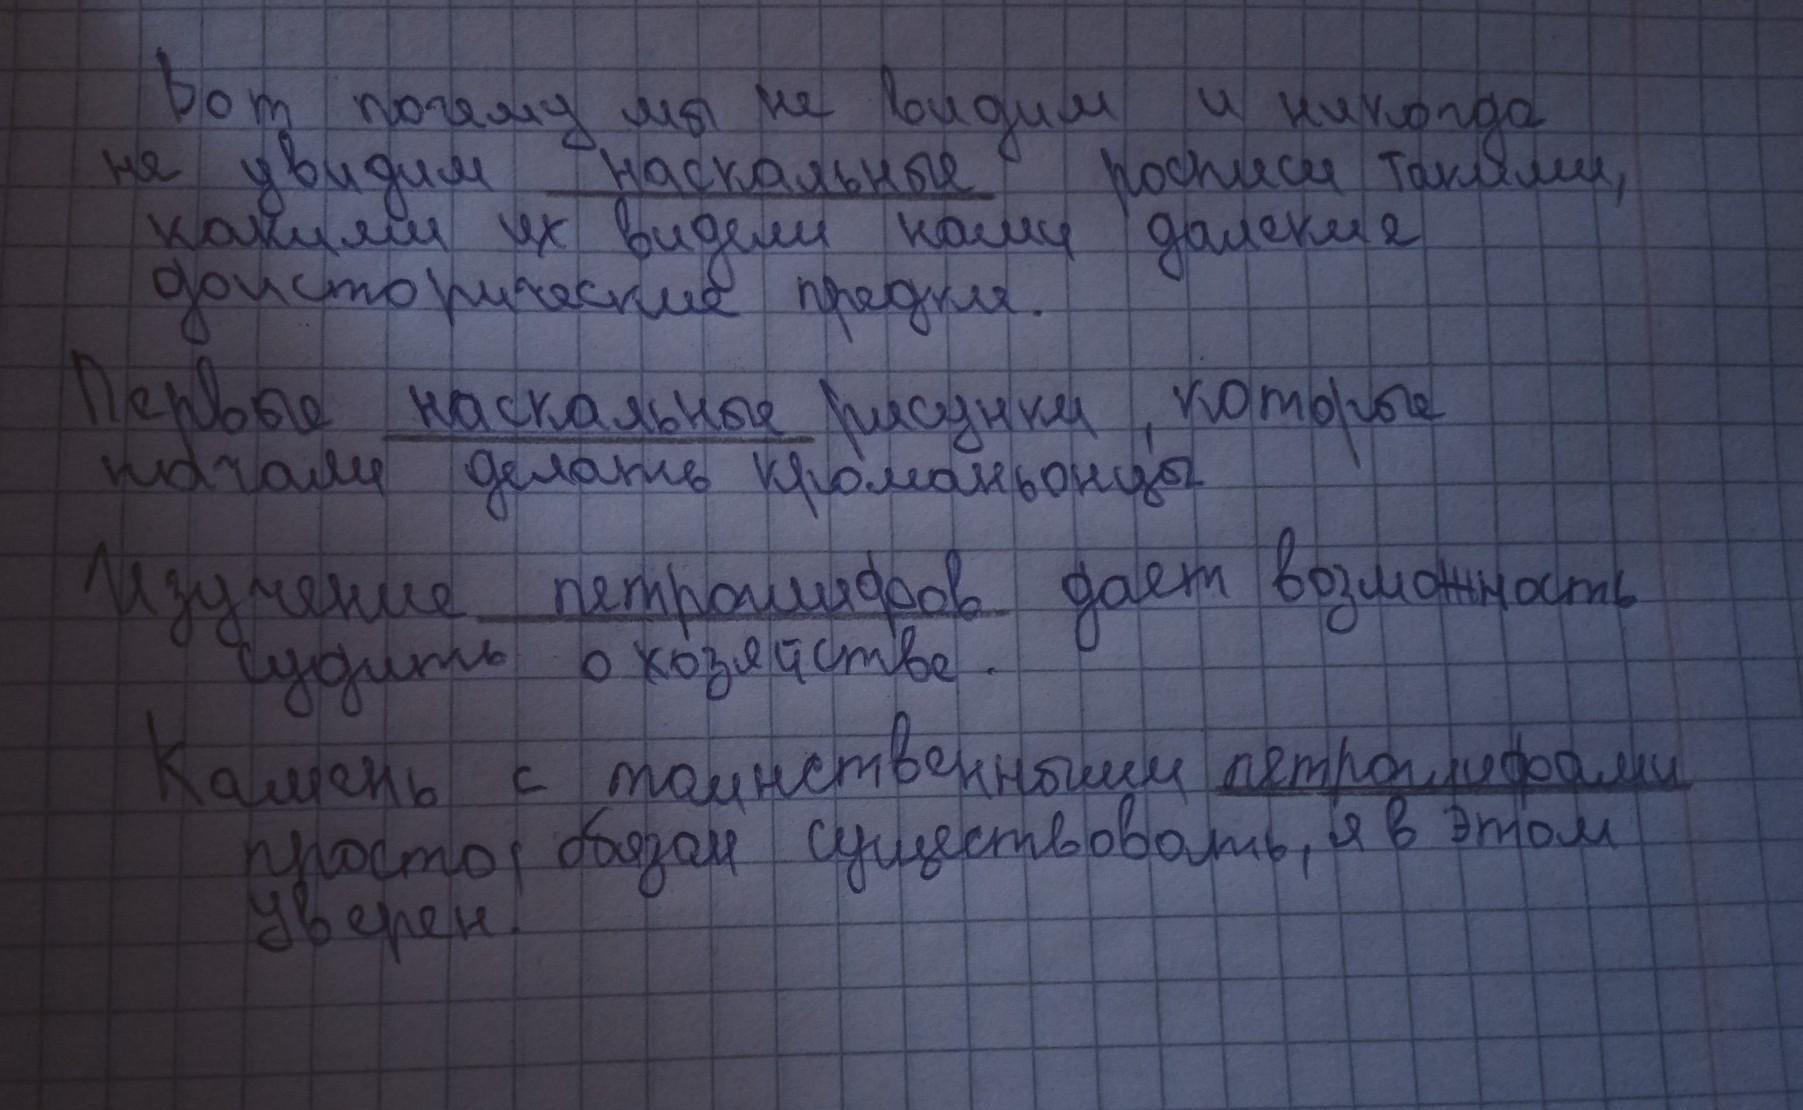 Вот почему мы не видим и никогда
не увидим наскальные росписи такими,
какими их видели наши далекие
доисторические предки.
Первые наскальные рисунки, которые
начали делать кроманьонцы
Изучение петроглифов дает возможность
судить о хозяйстве.
Камень с таинственными петроглифами
просто обязан существовать, я в этом
уверен.